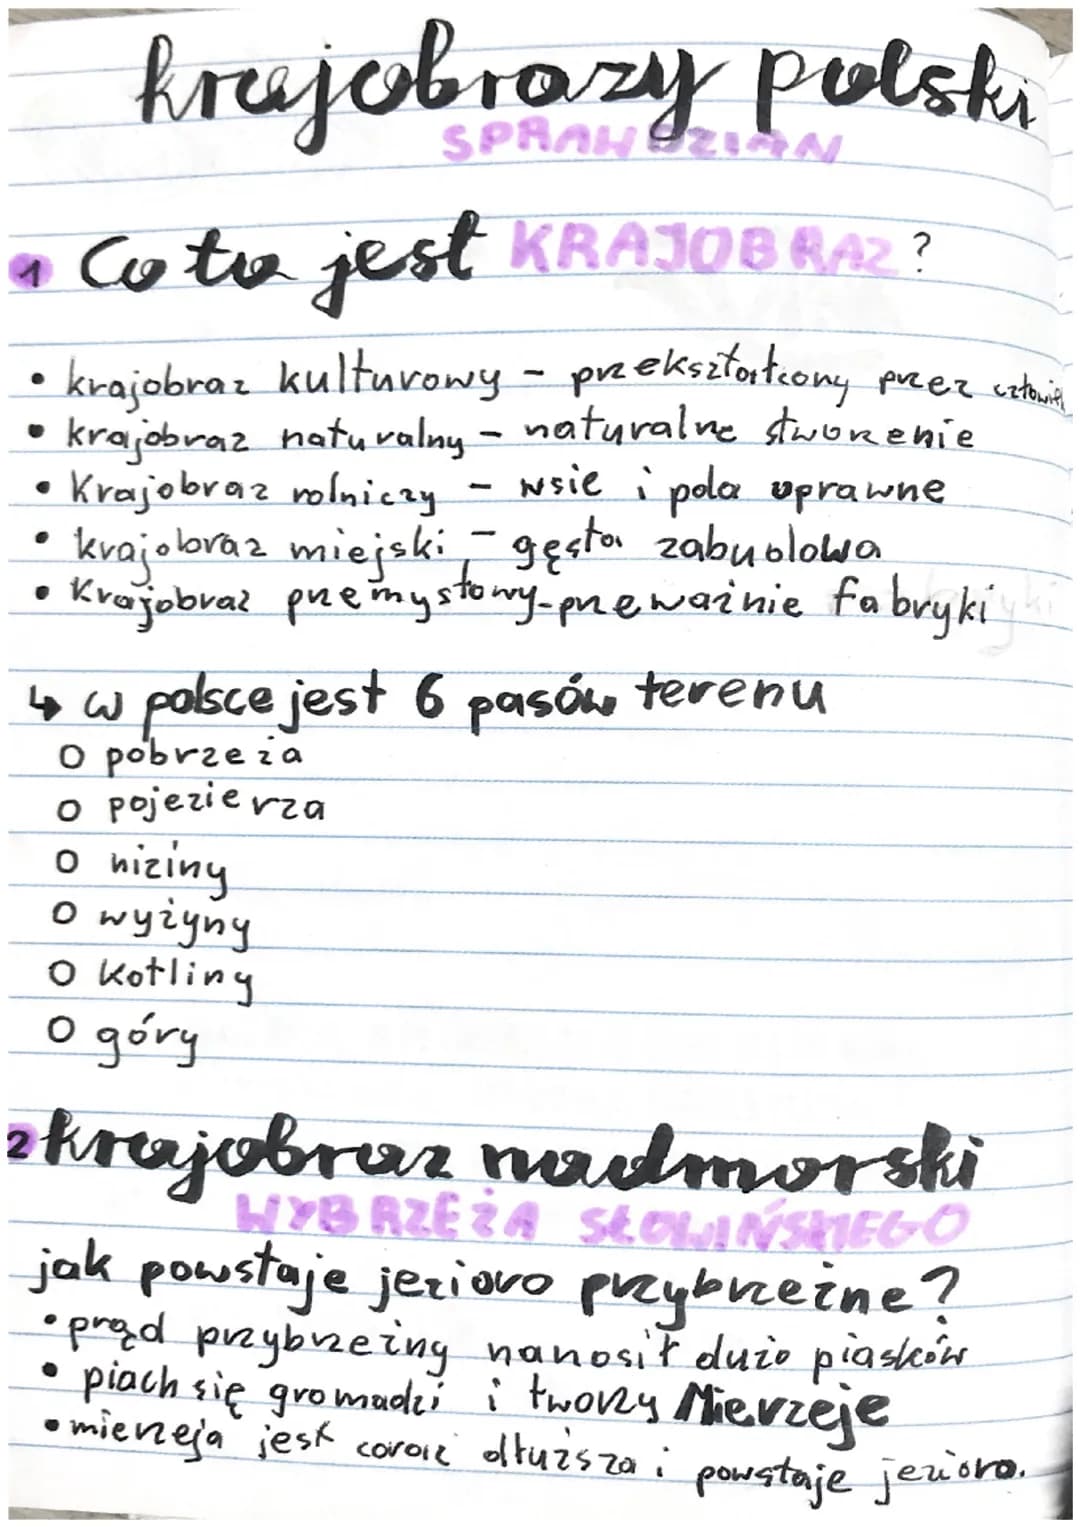 krajobrazy polski
SPRAWDZIAN
1 Co to jest KRAJOBRAZ?
• krajobraz kulturowy - przekształcony przez człowiek
• krajobraz naturalny - naturalne stworzenie
• Krajobraz rolniczy - wsie i pola uprawne
• krajobraz miejski - gęsta zabudowa
• Krajobraz przemysłowy - przeważnie fabryki
↳ w polsce jest 6 pasów terenu
O pobrzeża
O pojezierza
O niziny
O wyżyny
O kotliny
O góry
2 krajobraz nadmorski
WYBRZEŻA SŁOWIŃSKIEGO
jak powstaje jezioro przybrzeżne?
• prąd przybrzeżny nanosił dużo piasków
• piach się gromadzi i tworzy Mierzeje
• mierzeja jest coraz dłuższa i powstaje jezioro.